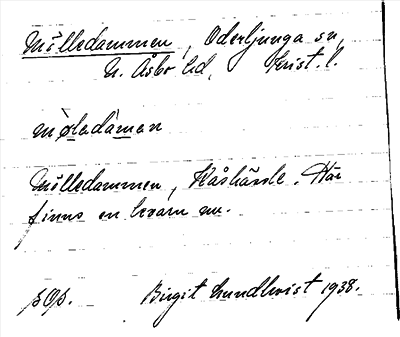 Mölledammen, Oderljunga sn,
N. Åsbo hd, Krist. l.
møladamen
Mölledammen, Kåshässle. Här
finns en kvarn nu.
Birgit Lundkvist 1938.